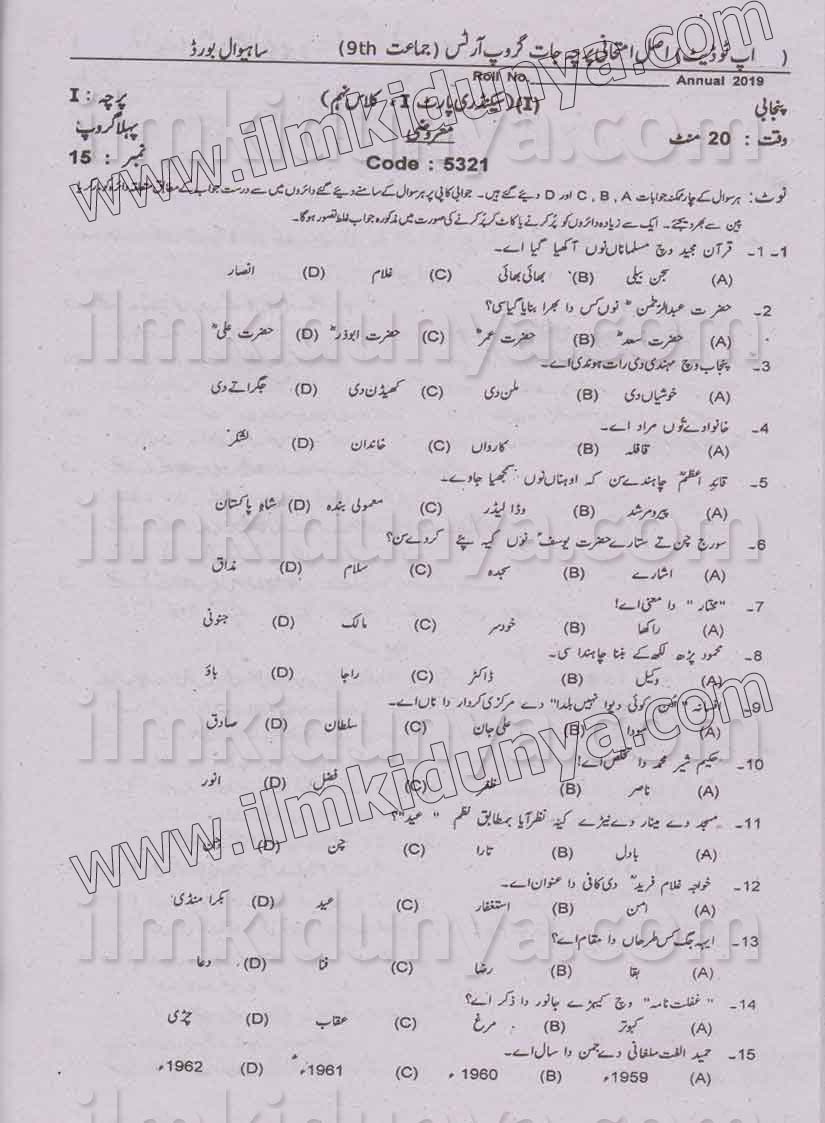 ( اپ ٹو ڈیٹ ) اصل امتحانی پرچہ جات گروپ آرٹس ( جماعت 9th ) ساہیوال بورڈ
Roll No. Annual 2019
پنجابی (I) (سیکنڈری پارٹ I ، کلاس نہم) پرچہ : I
وقت : 20 منٹ معروضی پہلا گروپ
Code : 5321 نمبر : 15
نوٹ: ہر سوال کے چار ممکنہ جوابات C , B , A اور D دیئے گئے ہیں۔ جوابی کاپی پر ہر سوال کے سامنے دیئے گئے دائروں میں سے درست جواب کے مطابق متعلقہ دائرہ کو مارکر یا
پین سے بھر دیجئے۔ ایک سے زیادہ دائروں کو پُر کرنے یا کاٹ کر پُر کرنے کی صورت میں مذکورہ جواب غلط تصور ہوگا۔
1۔ 1۔ قرآن مجید وچ مسلماناں نوں آکھیا گیا اے۔
(A) سجن بیلی (B) بھائی بھائی (C) غلام (D) انصار
2۔ حضرت عبدالرحمٰنؓ نوں کس دا بھرا بنایا گیا سی؟
(A) حضرت سعدؓ (B) حضرت عمرؓ (C) حضرت ابوذرؓ (D) حضرت علیؓ
3۔ پنجاب وچ مہندی دی رات ہوندی اے۔
(A) خوشیاں دی (B) ملن دی (C) کھیڈن دی (D) جگراتے دی
4۔ خانوادے توں مراد اے۔
(A) قافلہ (B) کارواں (C) خاندان (D) لشکر
5۔ قائدِ اعظمؒ چاہندے سن کہ اوہناں نوں سمجھیا جاوے۔
(A) پیر و مرشد (B) وڈا لیڈر (C) معمولی بندہ (D) شاہِ پاکستان
6۔ سورج چن تے ستارے حضرت یوسفؑ نوں کیہ پئے کردے سن؟
(A) اشارے (B) سجدہ (C) سلام (D) مذاق
7۔ "مختار" دا معنی اے!
(A) راکھا (B) خودسر (C) مالک (D) جنونی
8۔ محمود پڑھ لکھ کے بننا چاہندا سی۔
(A) وکیل (B) ڈاکٹر (C) راجا (D) باؤ
9۔ افسانہ "ہُن کوئی دیوا نہیں بلدا" دے مرکزی کردار دا ناں اے۔
(A) (B) علی جان (C) سلطان (D) صادق
10۔ حکیم شیر محمد دا تخلص اے!
(A) ناصر (B) ظفر (C) فضل (D) انور
11۔ مسجد دے مینار دے نیڑے کیہ نظر آیا بمطابق نظم "عید"؟
(A) بادل (B) تارا (C) چن (D)
12۔ خواجہ غلام فریدؒ دی کافی دا عنوان اے۔
(A) امن (B) استغفار (C) عید (D) بکرا منڈی
13۔ ایہہ جگ کس طرحاں دا مقام اے؟
(A) بقا (B) رضا (C) فنا (D) دعا
14۔ "غفلت نامہ" وچ کیہڑے جانور دا ذکر اے؟
(A) کبوتر (B) مرغ (C) عقاب (D) چڑی
15۔ حمید الفت ملغانی دے جمن دا سال اے۔
(A) 1959ء (B) 1960ء (C) 1961ء (D) 1962ء
www.ilmkidunya.com
ilmkidunya.com
ilmkidunya.com
ilmkidunya.com
ilmkidunya.com
www.ilmkidunya.com
ilmkidunya.com